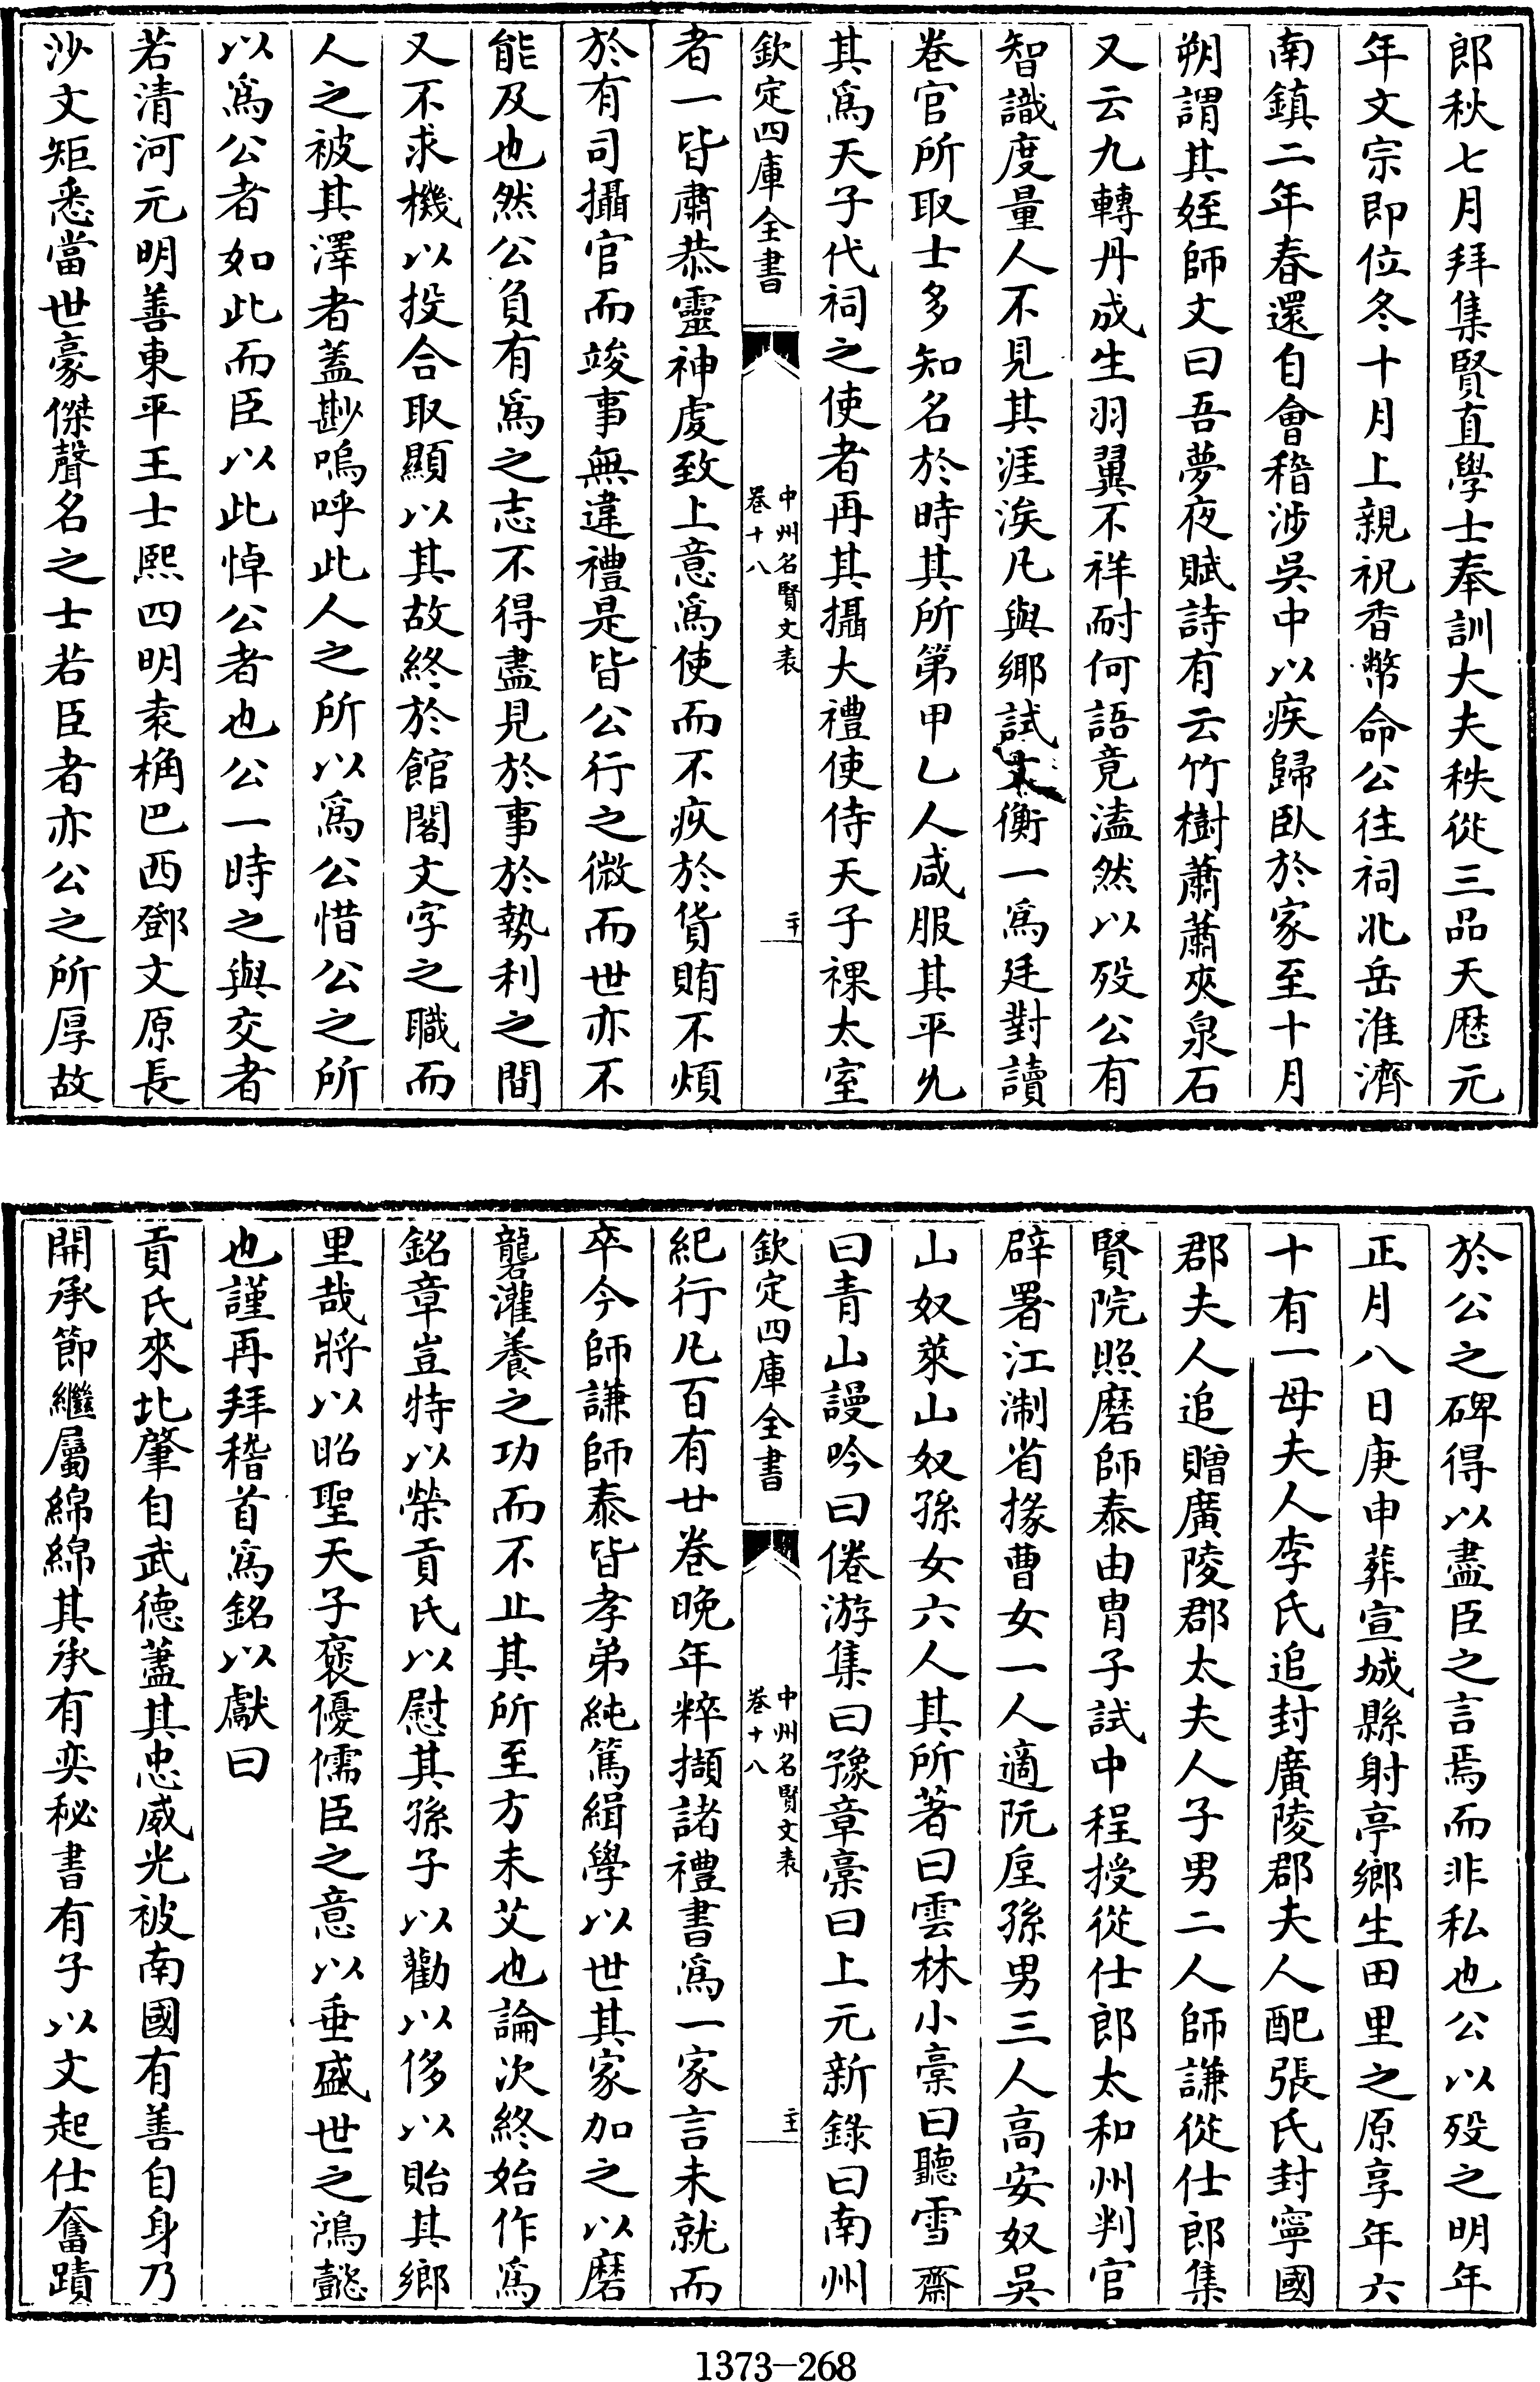 郎秋七月拜集賢直學士奉訓大夫秩從三品天厯元
年文宗即位冬十月上親祝香幣命公往祠北岳淮濟
南鎮二年春還自會稽涉吳中以疾歸臥於家至十月
朔謂其姪師文曰吾夢夜賦詩有云竹樹蕭蕭夾泉石
又云九轉丹成生羽翼不祥耐何語竟溘然以殁公有
智識度量人不見其涯涘凡與鄉試文衡一爲廷對讀
卷官所取士多知名於時其所第甲乙人咸服其平允
其爲天子代祠之使者再其攝大禮使侍天子祼太室
欽定四庫全書
中州名賢文表
卷十八
二十
者一皆肅恭靈神虔致上意爲使而不疚於貨賄不煩
於有司攝官而竣事無違禮是皆公行之微而世亦不
能及也然公負有爲之志不得盡見於事於勢利之間
又不求機以投合取顯以其故終於館閣文字之職而
人之被其澤者蓋尠嗚呼此人之所以爲公惜公之所
以爲公者如此而臣以此悼公者也公一時之與交者
若清河元明善東平王士熙四明袁桷巴西鄧文原長
沙文矩悉當世豪傑聲名之士若臣者亦公之所厚故
於公之碑得以盡臣之言焉而非私也公以殁之明年
正月八日庚申葬宣城縣射亭鄉生田里之原享年六
十有一母夫人李氏追封廣陵郡夫人配張氏封寧國
郡夫人追贈廣陵郡太夫人子男二人師謙從仕郎集
賢院照磨師泰由胄子試中程授從仕郎太和州判官
辟署江淛省掾曹女一人適阮垕孫男三人高安奴吳
山奴萊山奴孫女六人其所著曰雲林小稾曰聽雪齋
曰青山謾吟曰倦游集曰豫章稾曰上元新錄曰南州
欽定四庫全書
中州名賢文表
卷十八
二十一
紀行凡百有廿卷晚年粹擷諸禮書爲一家言未就而
卒今師謙師泰皆孝弟純篤緝學以世其家加之以磨
礲灌養之功而不止其所至方未艾也論次終始作爲
銘章豈特以榮貢氏以慰其孫子以勸以侈以貽其鄉
里哉將以昭聖天子褒優儒臣之意以垂盛世之鴻懿
也謹再拜稽首爲銘以獻曰
貢氏來北肇自武德藎其忠威光被南國有善自身乃
開承節繼屬綿綿其承有奕秘書有子以文起仕奮蹟
1373-268